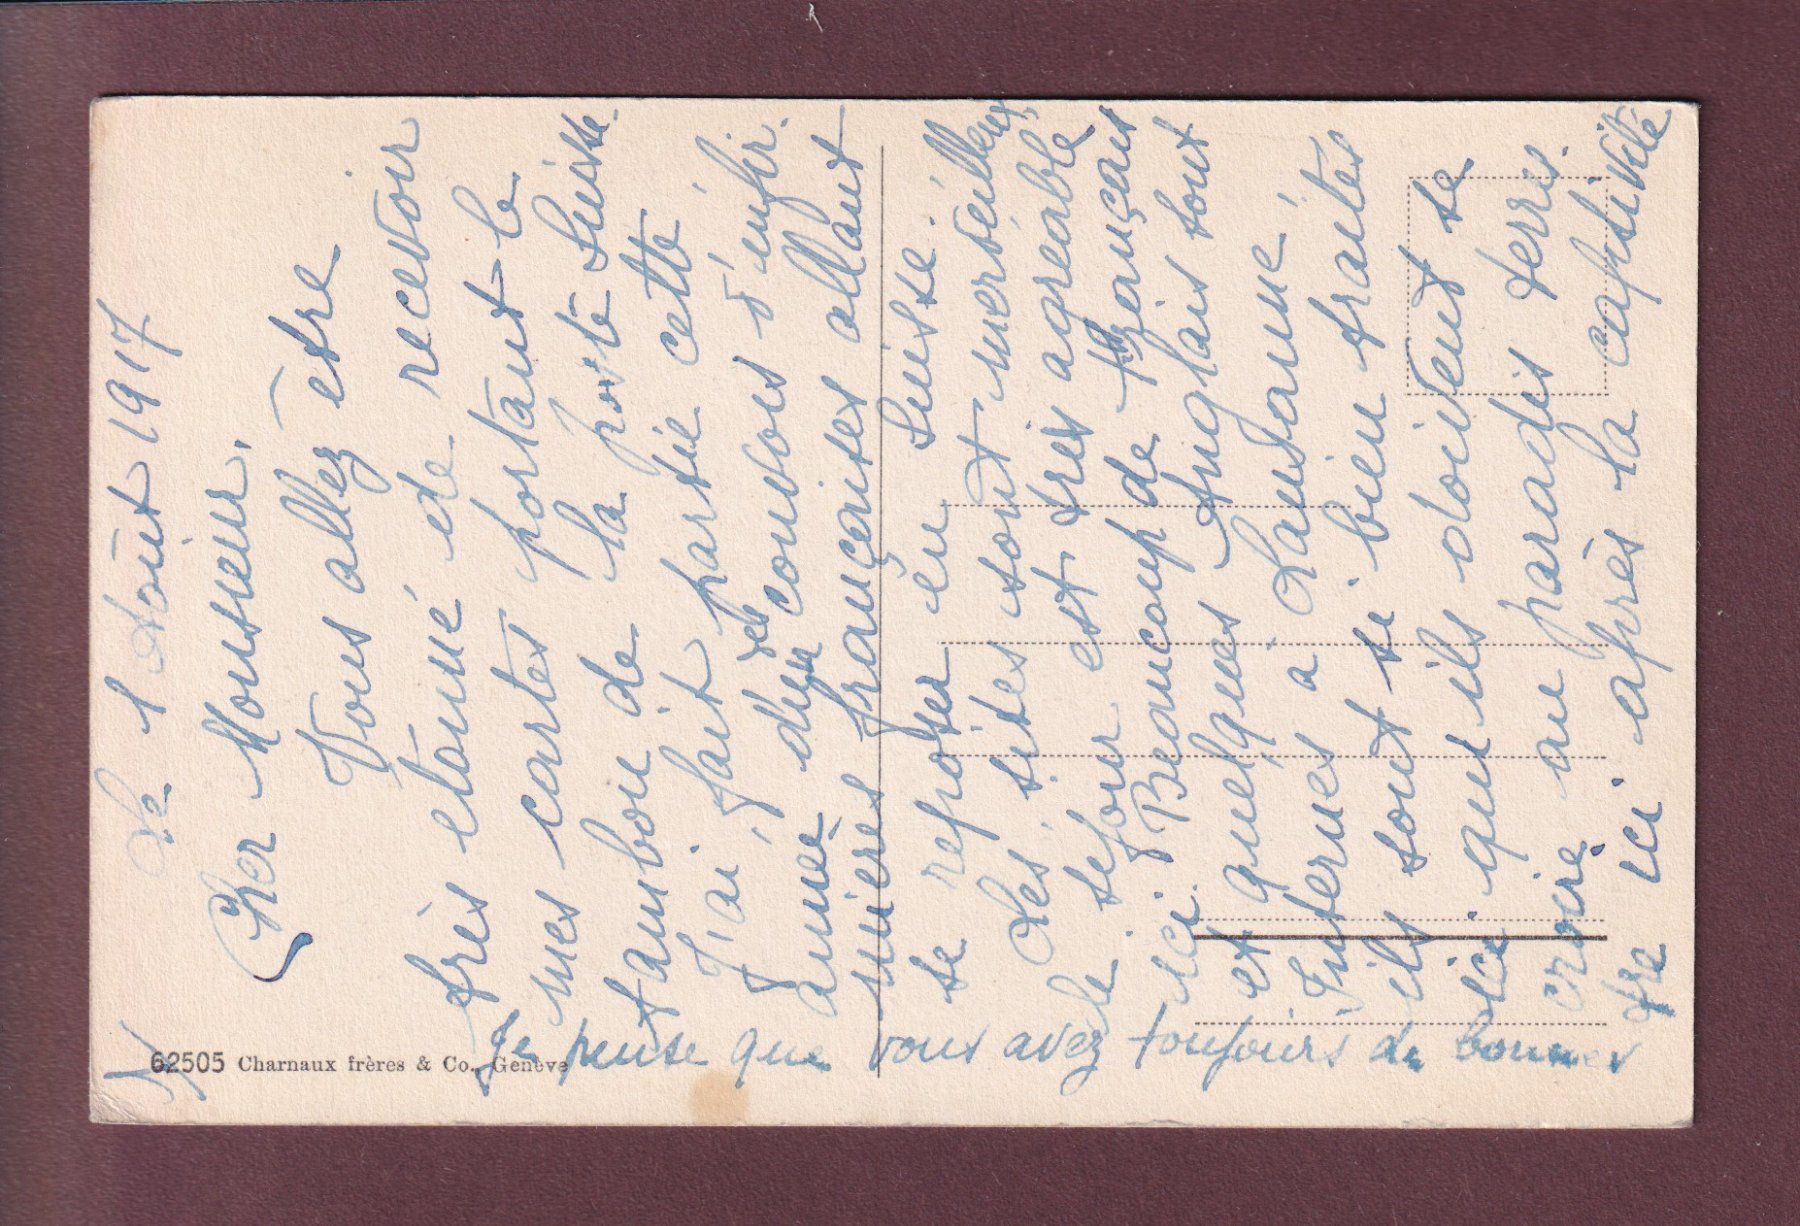 Le 1 Août 1917
Cher Monsieur,
Vous allez être
très etonné de recevoir
mes cartes portant le
tambon de la poste Suisse.
J'ai fait partie cette
année, des convois d'enfir.
mières françaises allant
se reposer en Suisse.
Les sites sont merveilleux
le sejour est très agreable
ici. Beaucoup de Français
et quelques Anglais sont
Internes a Lausanne,
ils sont si bien traités
ici qu'ils doivent se
croire au paradis terres.
tre ici après la captivité
Je pense que vous avez toujours de bonnes
62505 Charnaux frères & Co., Genève